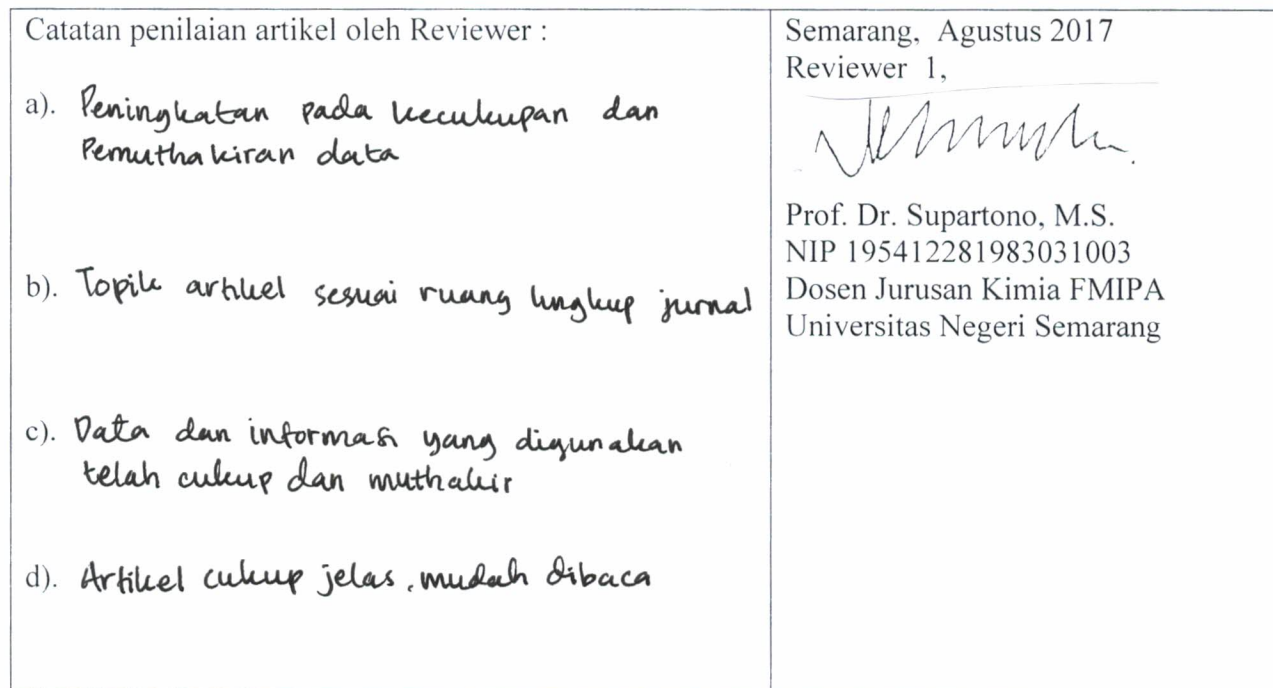 Catatan penilaian artikel oleh Reviewer :
a). Peningkatan pada kecukupan dan
Pemuthakiran data
b). Topik artikel sesuai ruang lingkup jurnal
c). Data dan informasi yang digunakan
telah cukup dan muthakir
d). Artikel cukup jelas, mudah dibaca
Semarang, Agustus 2017
Reviewer 1,
Prof. Dr. Supartono, M.S.
NIP 195412281983031003
Dosen Jurusan Kimia FMIPA
Universitas Negeri Semarang